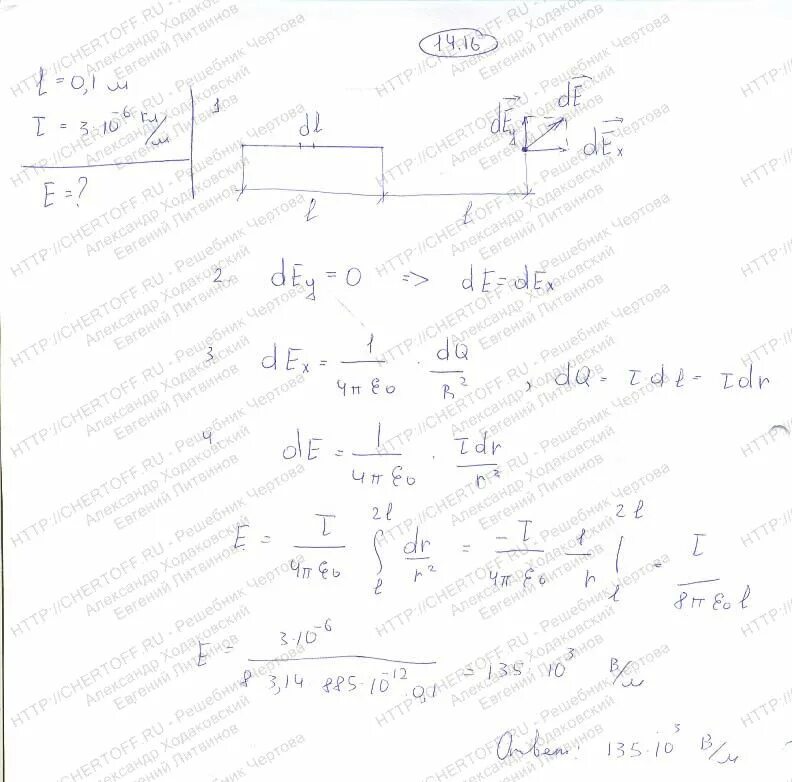 14.16
l = 0,1 м
τ = 3·10⁻⁶ Кл/м
E = ?
1
dl
dE⃗y
dE⃗
dE⃗x
l
l
2. dEy = 0 => dE = dEx
3 dEx = 1/4πε₀ · dQ/r², dQ = τ dl = τ dr
4 dE = 1/4πε₀ · τdr/r²
E = τ/4πε₀ ∫ₗ²ˡ dr/r² = -τ/4πε₀ 1/r |ₗ²ˡ = τ/8πε₀l
E = 3·10⁻⁶/8 3,14 885·10⁻¹²·0,1 = 135·10³ В/м
Ответ: 135·10³ В/м
HTTP://CHERTOFF.RU - Решебник Чертова
Александр Ходаковский
Евгений Литвинов